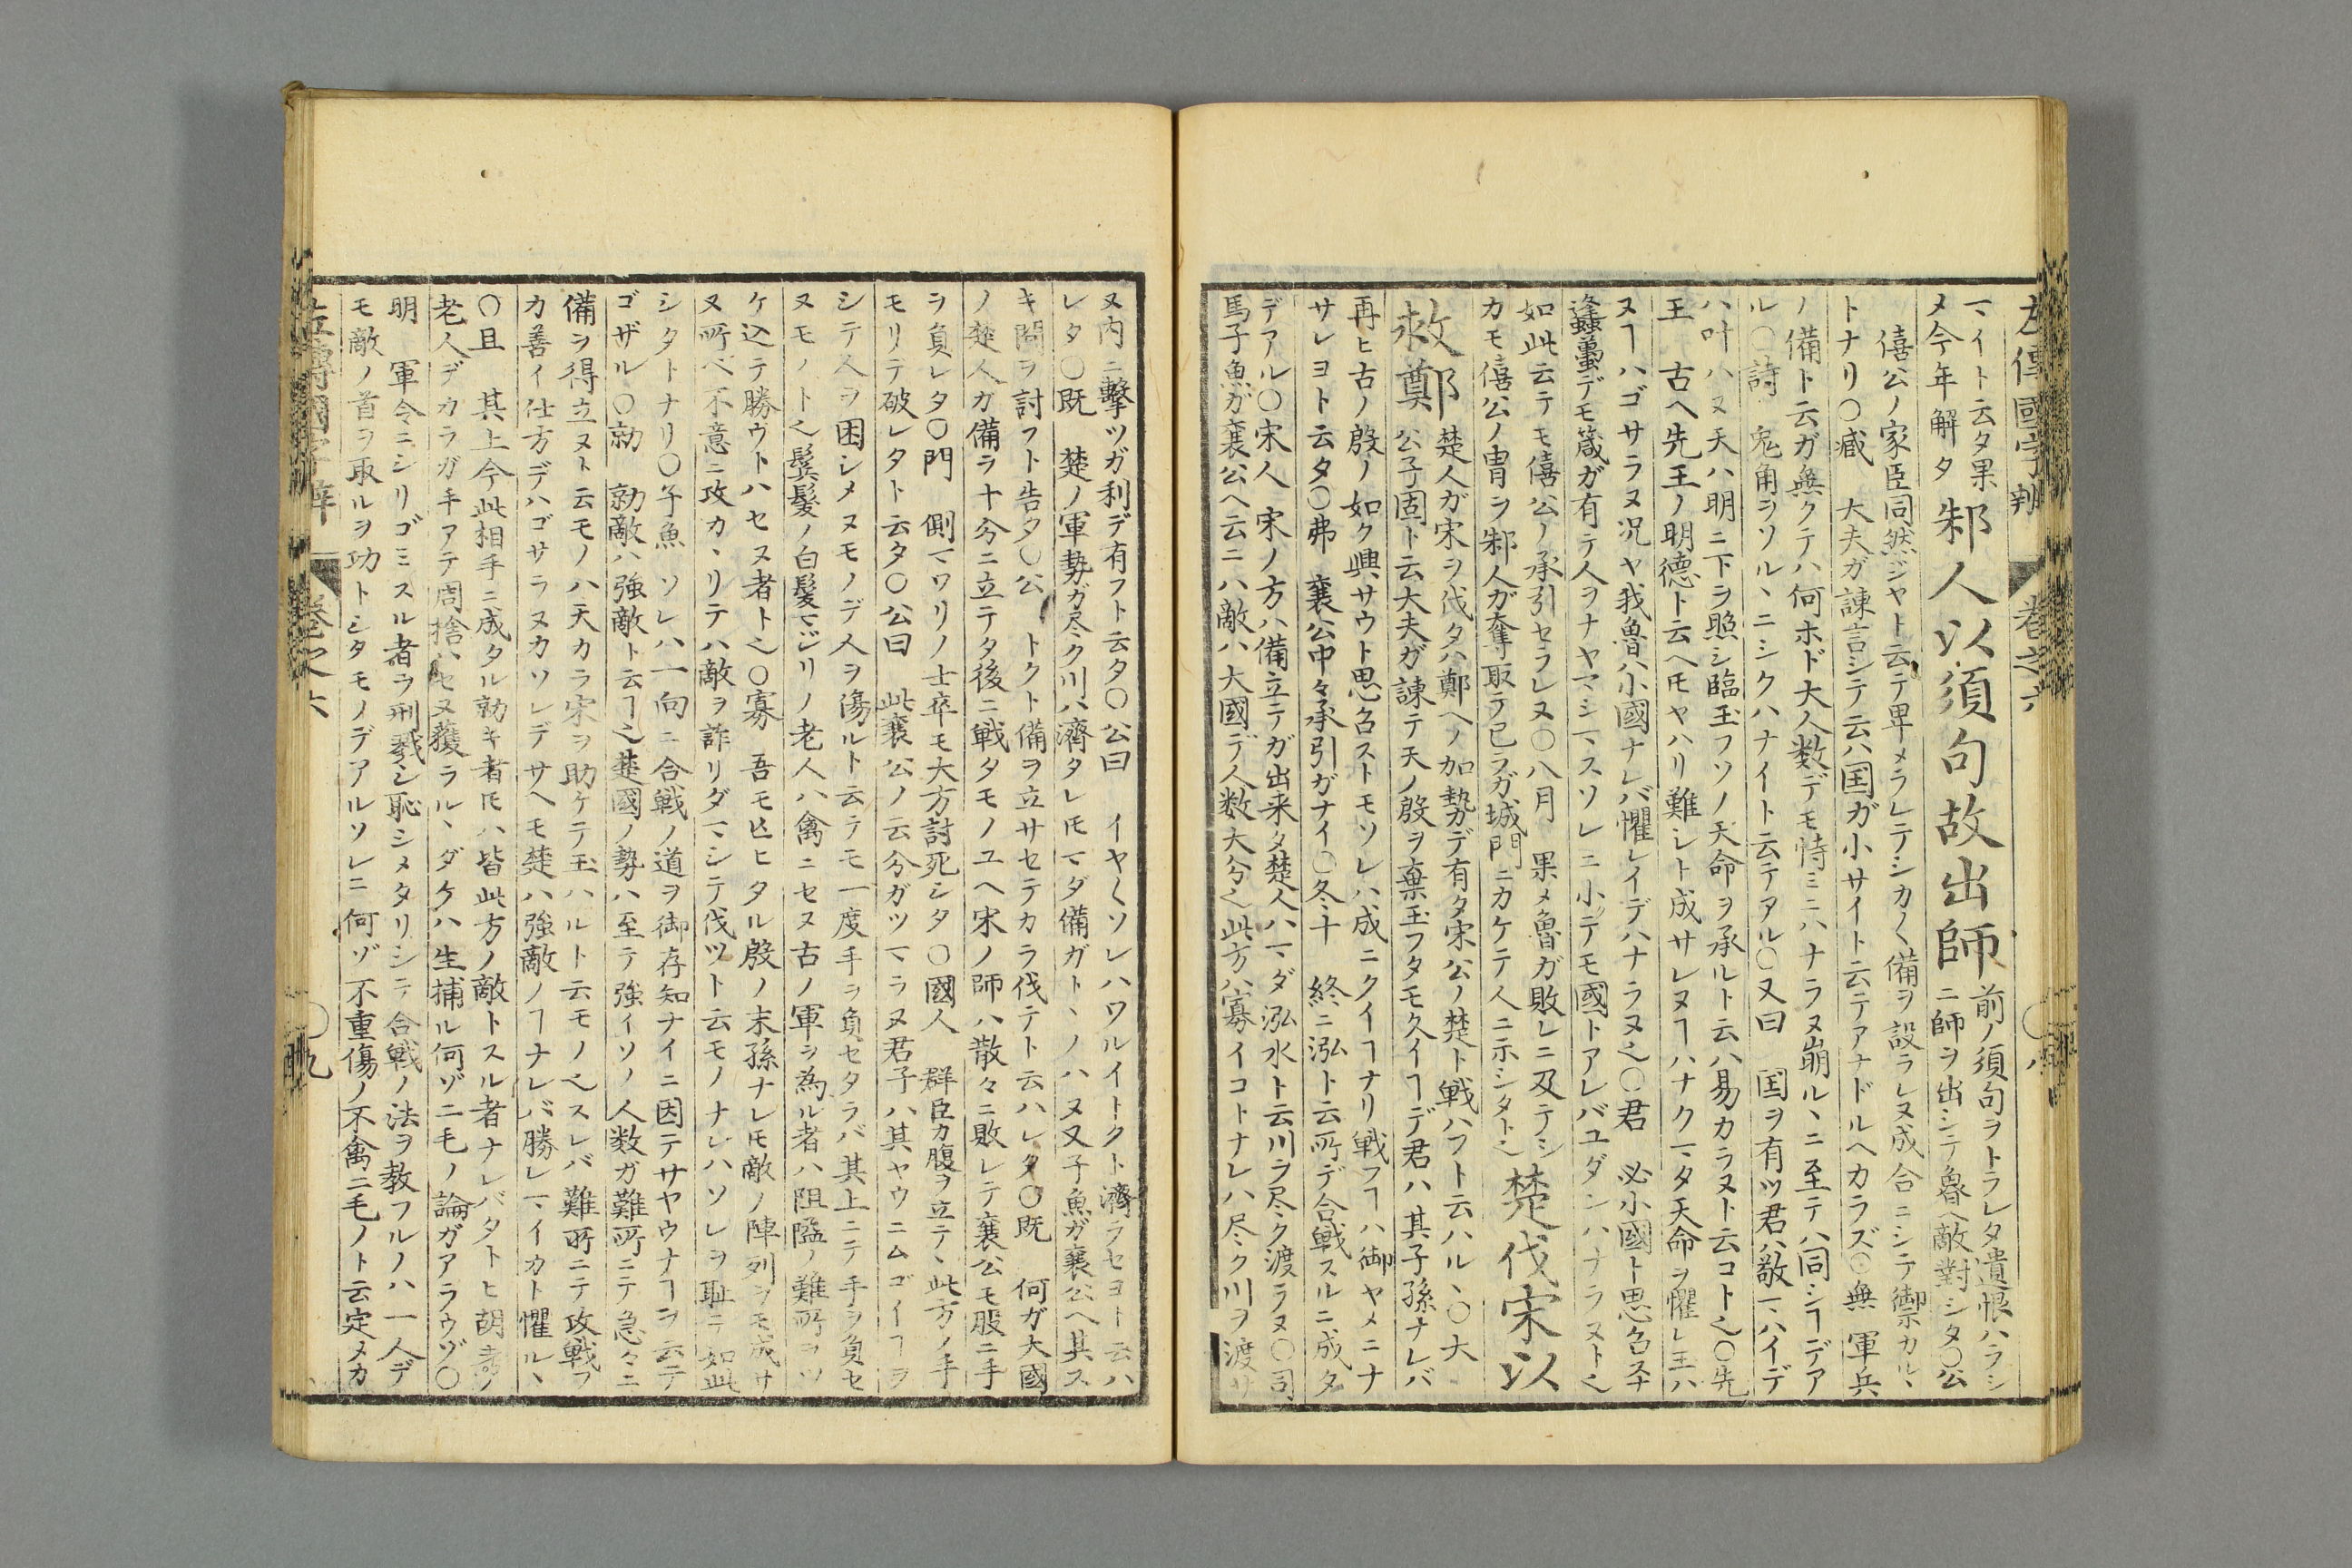 左傳國字辨　卷之六　〇八
マイト云タ果
メ今年解タ
邾人以須句故出師
前ノ須句ヲトラレタ遺恨ハラシ
ニ師ヲ出シテ魯ヘ敵對シタ〇公
僖公ノ家臣同然ジヤト云テ卑メラレテシカ〱備ヲ設ラレヌ成合ニシテ禦カルヽ
トナリ〇臧　大夫ガ諫言シテ云ハ国ガ小サイト云テアナドルヘカラズ〇無　軍兵
ノ備ト云ガ無クテハ何ホド大人数デモ恃ミニハナラヌ崩ルヽニ至テハ同シヿデア
ル〇詩　兎角ヲソルヽニシクハナイト云テアル〇又曰　国ヲ有ツ君ハ敬マハイデ
ハ叶ハヌ天ハ明ニ下ヲ照シ臨玉フソノ天命ヲ承ルト云ハ易カラヌト云コト之〇先
王　古ヘ先王ノ明德ト云ヘ𪜈ヤハリ難シト成サレヌヿハナクマタ天命ヲ懼レ玉ハ
ヌヿハゴサラヌ况ヤ我魯ハ小國ナレバ懼レイデハナラヌ之〇君　必小國ト思召スナ
蜂蠆デモ箴ガ有テ人ヲナヤマシマスソレニ小テモ國トアレバユダンハナラヌト之
如此云テモ僖公ノ承引セラレヌ〇八月　果メ魯ガ敗レニ及テシ
カモ僖公ノ冑ヲ邾人ガ奪取テ己ラガ城門ニカケテ人ニ示シタト之
楚伐宋以
救鄭
楚人ガ宋ヲ伐タハ鄭ヘノ加勢デ有タ宋公ノ楚ト戦ハフト云ハルヽ〇大
公子固ト云大夫ガ諫テ天ノ殷ヲ棄玉フタモ久イヿデ君ハ其子孫ナレバ
再ヒ古ノ殷ノ如ク興サウト思召ストモソレハ成ニクイヿナリ戦フヿハ御ヤメニナ
サレヨト云タ〇弗　襄公中々承引ガナイ〇冬十　終ニ泓ト云所デ合戦スルニ成タ
デアル〇宋人　宋ノ方ハ備立テガ出来タ楚人ハマダ泓水ト云川ヲ尽ク渡ラヌ〇司
馬子魚ガ襄公ヘ云ニハ敵ハ大國デ人数大分之此方ハ寡イコトナレハ尽ク川ヲ渡サ
ヌ内ニ擊ツガ利デ有フト云タ〇公曰　イヤ〱ソレハワルイトクト濟ラセヨト云ハ
レタ〇既　楚ノ軍勢ガ尽ク川ハ濟タレ𪜈マダ備ガトヽノハヌ又子魚ガ襄公ヘ其ス
キ間ヲ討フト告タ〇公　トクト備ヲ立サセテカラ伐テト云ハレタ〇既　何ガ大國
ノ楚人ガ備ラ十分ニ立テタ後ニ戦タモノユヘ宋ノ師ハ散々ニ敗レテ襄公モ股ニ手
ヲ負レタ〇門　側マワリノ士卒モ大方討死シタ〇國人　群臣カ腹ヲ立テヽ此方ノ手
モリテ破レタト云タ〇公曰　此襄公ノ云分ガツマラヌ君子ハ其ヤウニムゴイヿヲ
シテ人ヲ困シメヌモノデ人ヲ傷ルト云テモ一度手ヲ負セタラバ其上ニテ手ヲ負セ
ヌモノト之鬓髪ノ白髪マジリノ老人ハ禽ニセヌ古ノ軍ヲ為ル者ハ阻隘ノ難所ヲツ
ケ込テ勝ウトハセヌ者ト之〇寡　吾モ亡ヒタル殷ノ末孫ナレ𪜈敵ノ陣列ヲモ成サ
ヌ所ヘ不意ニ攻カヽリテハ敵ヲ詐リダマシテ伐ツト云モノナレハソレヲ耻テ如此
シタトナリ〇子魚　ソレハ一向ニ合戦ノ道ヲ御存知ナイニ因テサヤウナヿヲ云テ
ゴザル〇勍　勍敵ハ強敵ト云ヿ之楚國ノ勢ハ至テ強イソノ人数ガ難所ニテ急々ニ
備ヲ得立ヌト云モノハ天カラ宋ヲ助ケテ玉ハルト云モノ之スレバ難所ニテ攻戦フ
カ善イ仕方デハゴサラヌカソレデサヘモ楚ハ強敵ノヿナレバ勝レマイカト懼ルヽ
〇且　其上今此相手ニ成タル勍キ者𪜈ハ皆此方ノ敵トスル者ナレバタトヒ胡耇ノ
老人デカラガ手アテ周捨ハセヌ獲ラルヽダケハ生捕ル何ゾ二毛ノ論ガアラウゾ〇
明　軍令ニシリゴミスル者ラ刑戮シ恥シメタリシテ合戦ノ法ヲ教フルノハ一人デ
モ敵ノ首ヲ取ルヲ功トシタモノデアルソレニ何ゾ不重傷ノ不禽二毛ノト云定メカ
左傳國字辨　卷之六　〇九